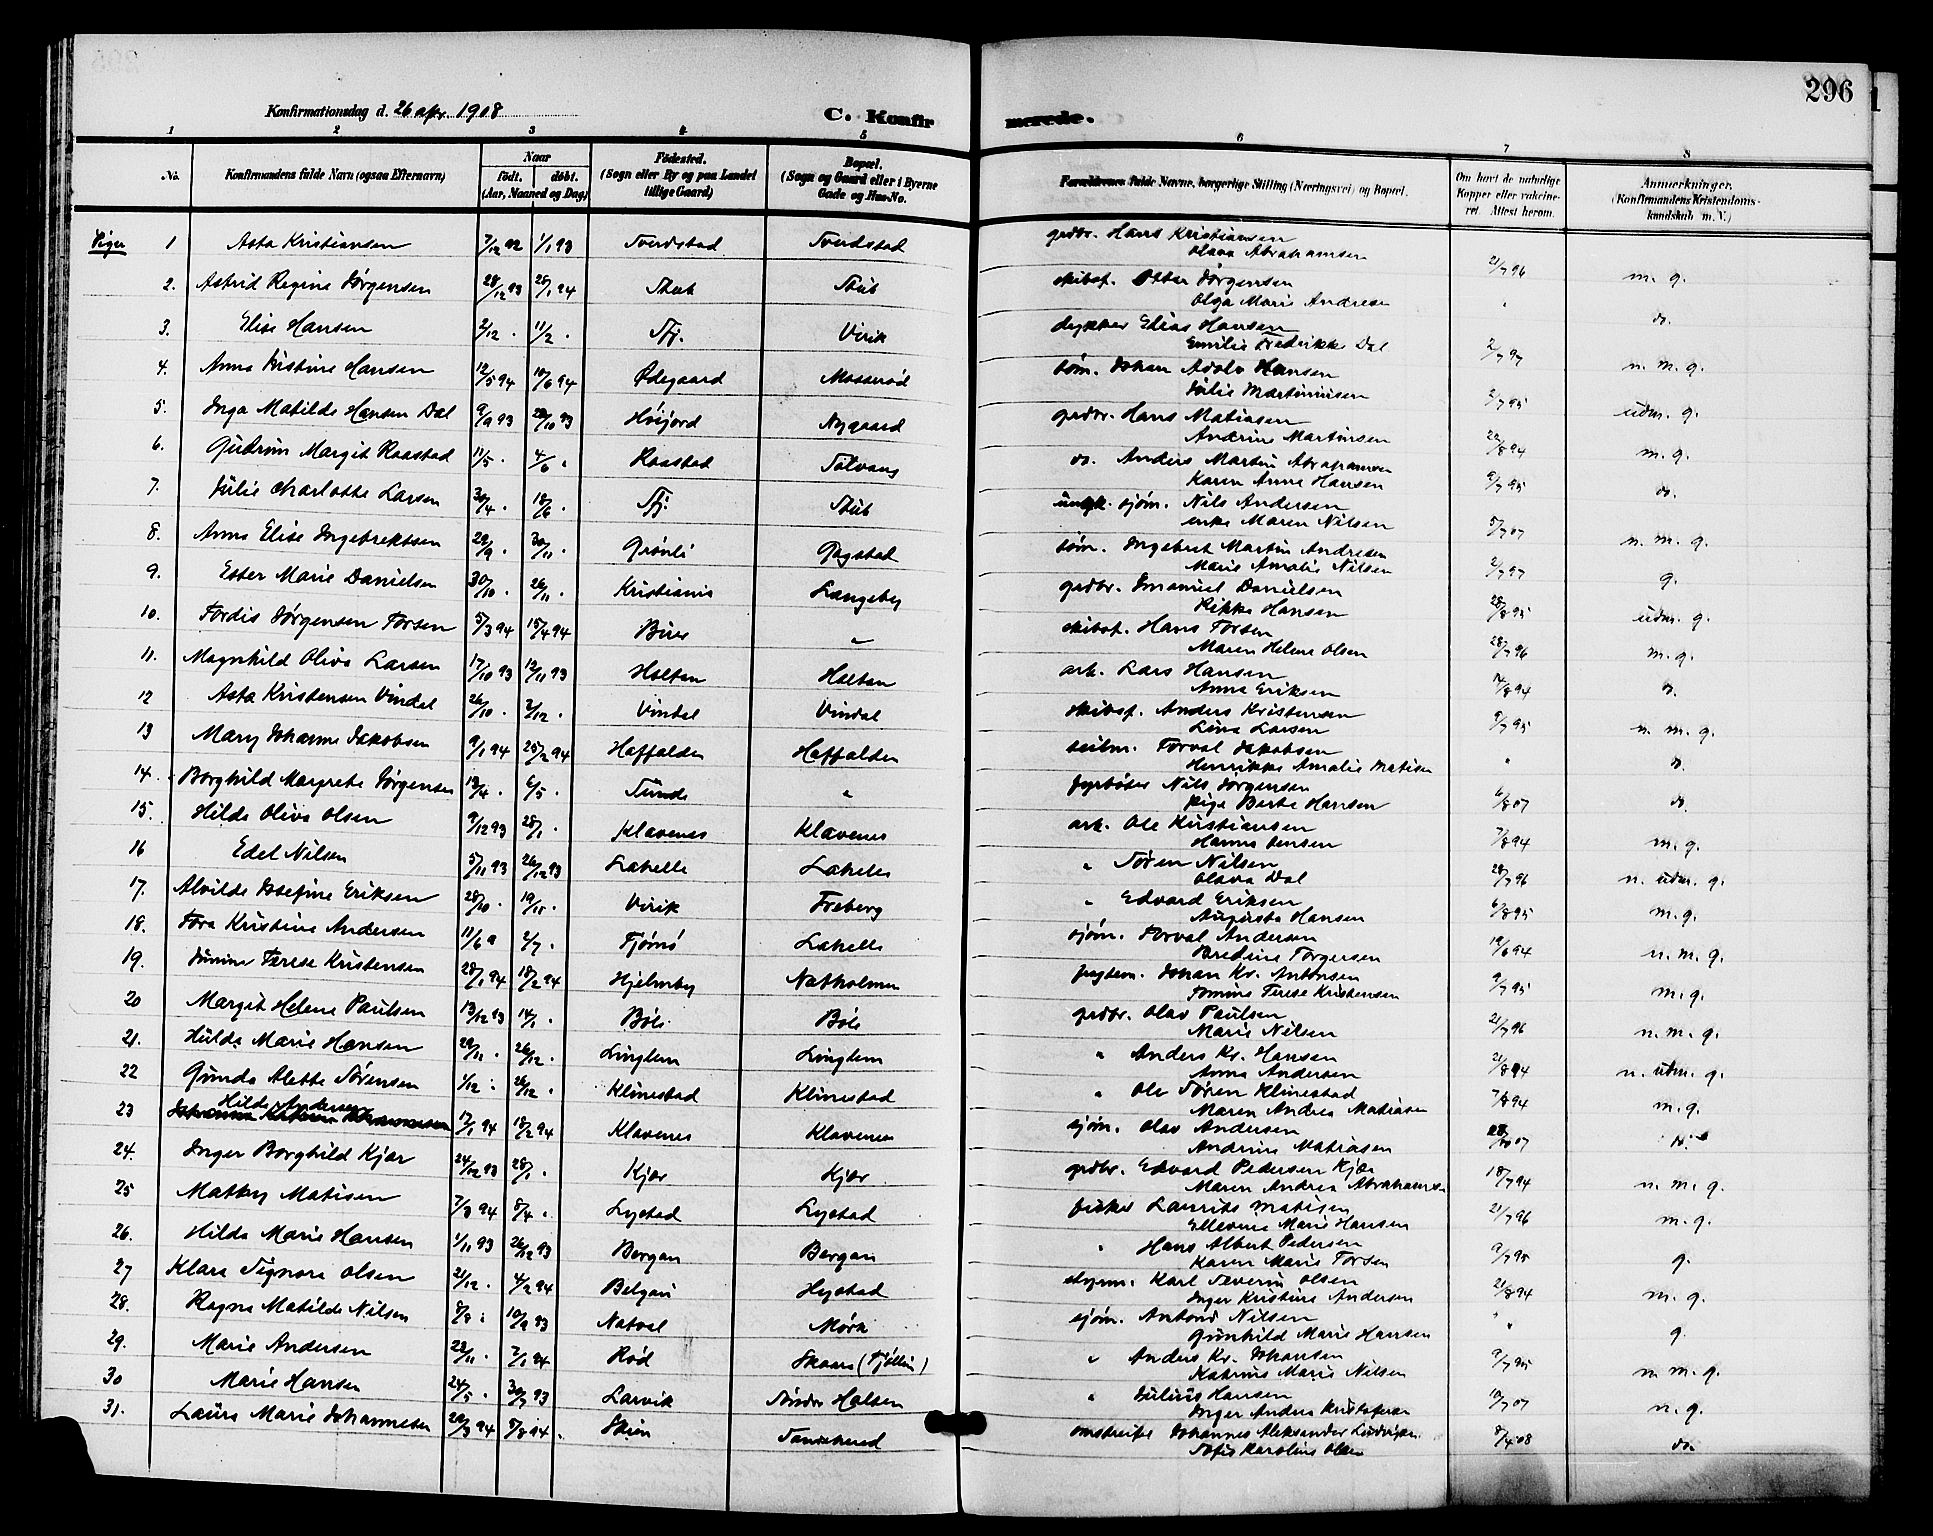 296
Konfirmationsdag d. 26 apr. 1908
C. Konfirmerede.
1 2 3 4 5 6 7 8
No.
Konfirmandens fulde Navn (ogsaa Efternavn)
Naar
født. døbt.
(Aar, Maaned og Dag)
Fødested.
(Sogn eller By og paa Landet
tillige Gaard)
Bopæl.
(Sogn og Gaard eller i Byerne
Gade og Hus-No.
Forældrenes fulde Navne, borgerlige Stilling (Næringsvei) og Bopæl.
Om havt de naturlige
Kopper eller vakcine-
ret. Attest herom.
Anmærkninger.
(Konfirmandens Kristendoms-
kundskab m. V.)
Piger
1 Asta Kristiansen 7/12 92 1/1 93 Sverdstad Sverdstad grdbr. Hans Kristiansen
Olava Abrahamsen 21/7 96 m. g.
2. Astrid Regine Jørgensen 28/12 93 28/1 94 Stub Stub skibsf. Otter Jørgensen
Olga Marie Andresen " do.
3. Elise Hansen 2/12 . 11/2 . Sfj. Virik dykker Elias Hansen
Emilie Fredrikke Dal 2/7 97 n. m. g.
4. Anna Kristine Hansen 12/5 94 10/6 94 Ødegaard Moserød tøm. Johan Adolv Hansen
Julie Martinusen 2/7 95 udm. g.
5. Inga Matilde Hansen Dal 9/9 93 29/10 93 Høijord Nygaard grdbr. Hans Matiasen
Andrine Martinsen 22/8 94 m. g.
6. Gudrun Margit Raastad 11/5 . 4/6 . Raastad Solvang do. Anders Martin Abrahamsen
Karen Anne Hansen 9/7 95 do.
7. Julie Charlotte Larsen 30/4 . 18/6 . Sfj. Stub ungk. sjøm. Nils Andersen
enke Maren Nilsen 5/7 07 n. m. g.
8. Anna Elise Ingebrektsen 29/9 . 30/11 . Grønli Gogstad tøm. Ingebret Martin Andresen
Marie Amalie Nilsen 2/7 97 g.
9. Ester Marie Danielsen 30/10 . 26/11 . Kristiania Langeby grdbr. Emanuel Danielsen
Rikke Hansen 28/8 95 udm. g.
10. Tordis Jørgensen Torsen 5/3 94 15/4 94 Buer " skibsf. Hans Torsen
Maren Helene Olsen 28/7 96 m. g.
11. Magnhild Oliva Larsen 17/10 93 12/11 93 Holtan Holtan arb. Lars Hansen
Anna Eriksen 14/8 94 do.
12 Asta Kristensen Vindal 26/10 . 2/12 . Vindal Vindal skibsf. Anders Kristensen
Lina Larsen 9/7 95 n. m. g.
13 Mary Johanne Jakobsen 9/1 94 25/2 94 Haffalden Haffalden seilm. Torval Jakobsen
Henrikke Amalie Matisen " do.
14. Borghild Margrete Jørgensen 13/4 . 6/5 . Sunde " fyrbøter Nils Jørgensen
pige Berte Hansen 6/8 07 do.
15. Hilda Oliva Olsen 9/12 93 28/1 . Klavenes Klavenes arb. Ole Kristiansen
Hanna Jensen 7/8 94 m. g.
16 Edel Nilsen 5/11 93 26/12 93 Lahelle Lahelle " Søren Nilsen
Olava Dal 28/7 96 n. udm. g.
17. Alvilde Josefine Eriksen 28/10 . Virik Freberg " Edvard Eriksen
Augusta Hansen 6/8 95 m. g.
18. Tora Kristine Andersen 11/6 2/7 . Tjømø Lahelle sjøm. Torval Andersen
Bredine Torgersen 19/6 94 n. m. g.
19. Junine Terese Kristensen 28/1 94 18/2 94 Hjelmby Natholmen Johan Kr. Antonsen
Jomine Terese Kristensen 9/7 95 m. g.
20 Margit Helene Paulsen 13/12 93 14/1 . Bøle Bøle grdbr. Olav Paulsen
Marie Nilsen 21/7 96 n. m. g.
21. Hulda Marie Hansen 29/11 . 26/12 . Linglem Linglem " Anders Kr. Hansen
Anna Andersen 21/8 94 n. udm. g.
22 Gunda Alette Sørensen 1/12 . 26/12 . Klinestad Klinestad " Ole Søren Klinestad
Maren Andrea Matiasen 7/8 94 m. g.
23 Hilda Andersen 17/1 94 18/2 94 Klavenes Klavenes sjøm. Olav Andersen
Andrine Matiasen do.
24. Inger Borghild Kjær 24/12 93 28/1 . Kjær Kjær grdbr. Edvard Pedersen Kjær
Maren Andrea Abrahamsen 18/7 94 n. m. g.
25 Mathy Matisen 7/3 94 8/4 . Lystad Lystad fisker Laurits Matisen
Ellevine Marie Hansen 21/7 96 m. g.
26. Hilda Marie Hansen 1/11 93 26/12 93 Bergan Bergan " Hans Albert Pedersen
Karen Marie Torsen 9/7 95 g.
27 Klara Signora Olsen 21/12 . 4/2 94 Belgau Hystad styrm. Karl Severin Olsen
Inger Kristine Andersen 21/8 94 m. g.
28. Ragna Matilde Nilsen 8/8 . 10/9 93 Natval Mørk sjøm. Antoni Nilsen
Gunhild Marie Hansen " g.
29. Marie Andersen 23/11 . 7/1 94 Rød Skaara (Tjølling) " Anders Kr. Johansen
Katrine Marie Nilsen 9/7 95 n m. g.
30 Marie Hansen 24/5 . 30/7 93 Larvik Søndre Halsen " Julius Hansen
Inger Andrea Kristofersen 10/7 07 n. g.
31. Laura Marie Johannesen 20/3 94 5/8 94 . Skien Sandeherad omstreifer Johannes Aleksander Ludvigsen
Sofie Karoline Olsen 8/4 08 do.